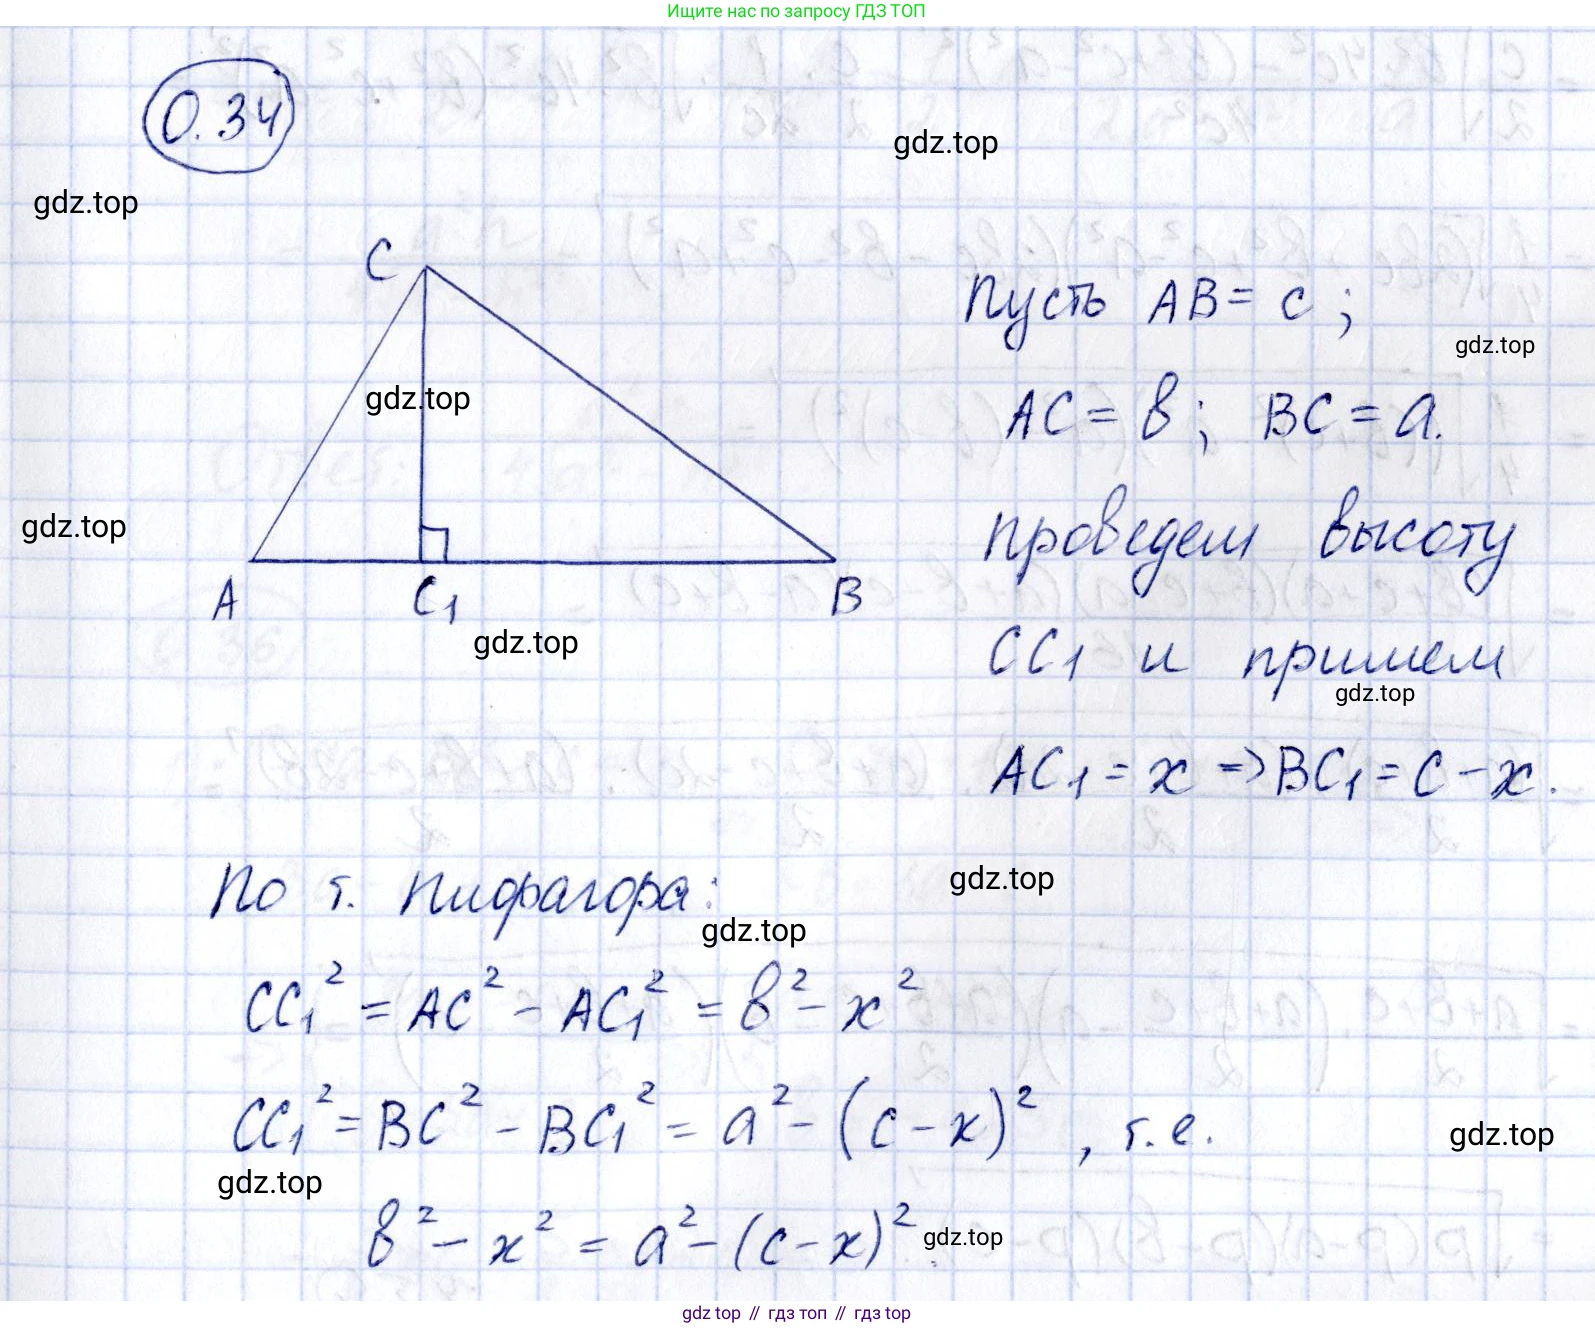 Ищите нас по запросу ГДЗ ТОП
0.34
gdz.top
gdz.top
C
Пусть AB = c ;
gdz.top
gdz.top
AC = b ; BC = a.
gdz.top
проведем высоту
A
C₁
B
gdz.top
CC₁ и примем
gdz.top
AC₁ = x => BC₁ = c - x .
По т. Пифагора:
gdz.top
gdz.top
CC₁² = AC² - AC₁² = b² - x²
CC₁² = BC² - BC₁² = a² - (c - x)² , т.е.
gdz.top
gdz.top
b² - x² = a² - (c - x)²
gdz.top
gdz top // гдз топ // гдз top